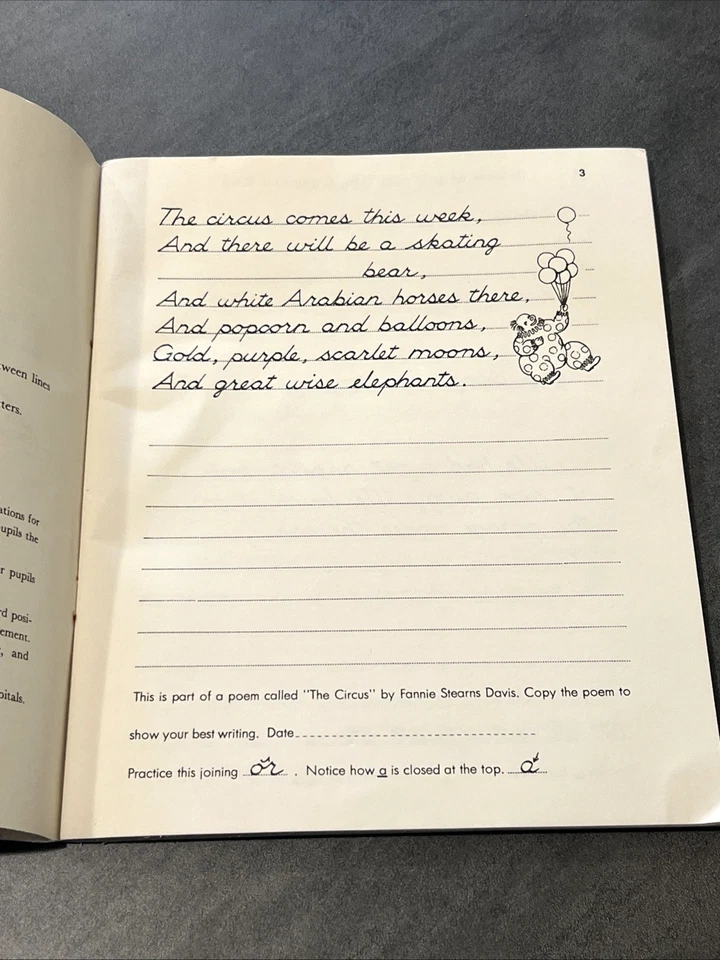 ween lines
ters.
ations for
upils the
r pupils
rd posi-
ement.
, and
pitals.
3
The circus comes this week,
And there will be a skating
bear,
And white Arabian horses there,
And popcorn and balloons,
Gold, purple, scarlet moons,
And great wise elephants.
This is part of a poem called "The Circus" by Fannie Stearns Davis. Copy the poem to
show your best writing. Date
Practice this joining or . Notice how a is closed at the top. a